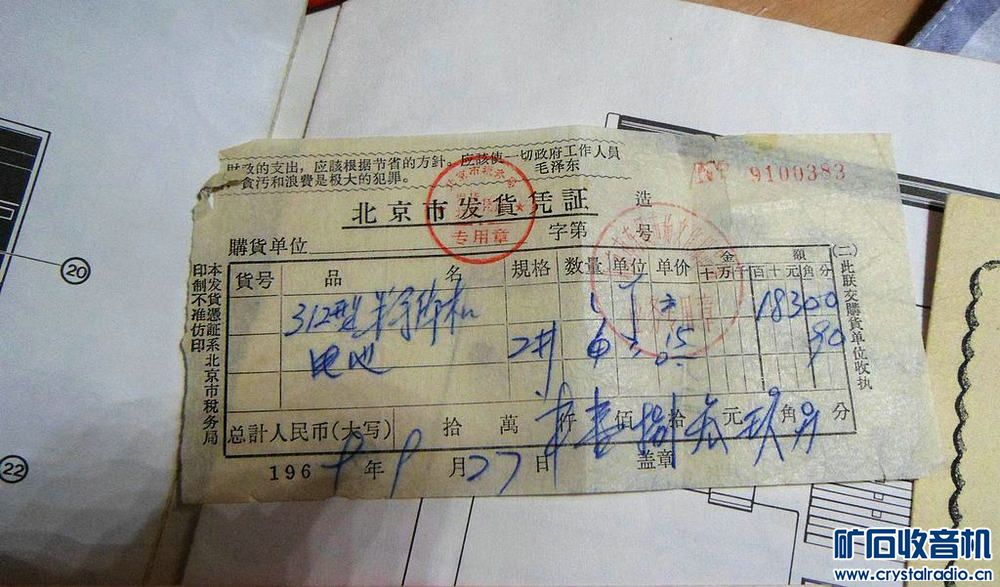 财政的支出，应该根据节省的方針。应該使一切政府工作人员
贪污和浪費是极大的犯罪。 毛泽东
9100383
北京市税务局
专用章
北京市发貨凭証
造
字第 号
購貨单位
貨号 品 名 規格 数量 单位 单价 金 額
十万千百十元角分
312型半导体机 1 183 00
电池 2井 6 15 90
总計人民币(大写) 拾 萬 仟壹佰捌拾叁元玖角 分
1969年9月27日 盖章
本发貨憑証系北京市税务局
印制不准仿印
(二)此联交購貨单位收执
20
22
矿石收音机
www.crystalradio.cn